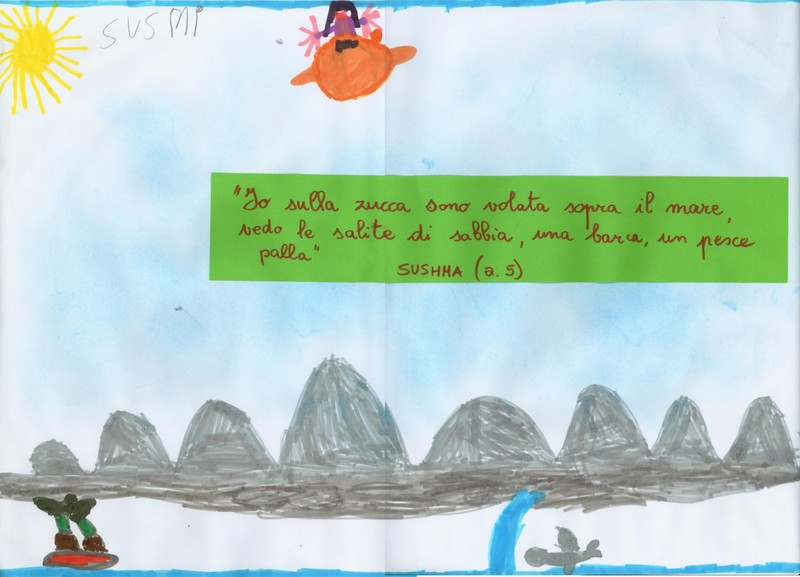 SUSMI
"Io sulla zucca sono volata sopra il mare,
vedo le salite di sabbia, una barca, un pesce
palla"
SUSHMA (a. 5)